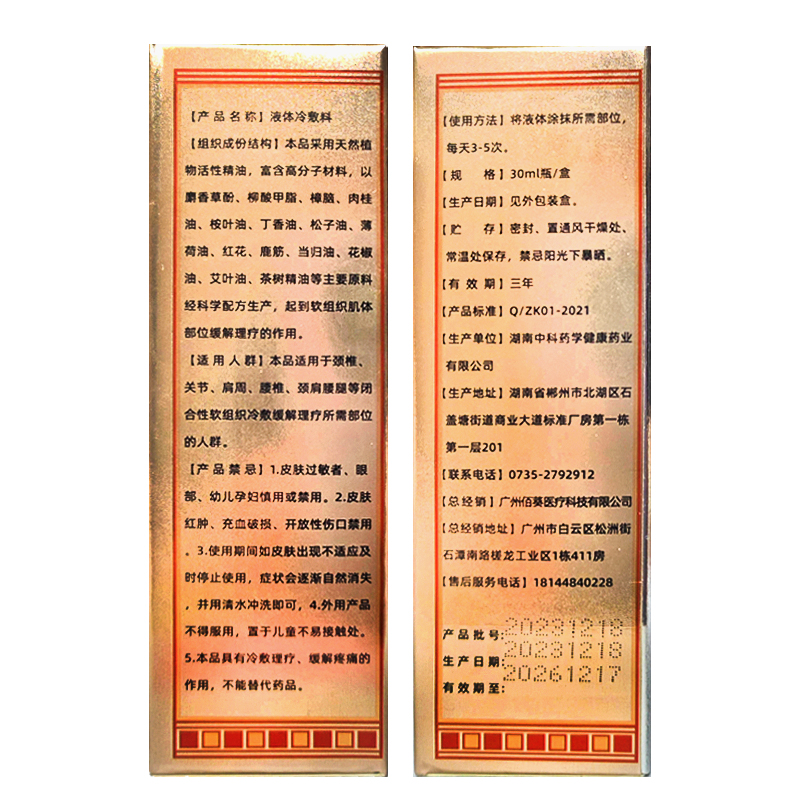 【产品名称】液体冷敷料
【组织成份结构】本品采用天然植
物活性精油，富含高分子材料，以
麝香草酚、柳酸甲脂、樟脑、肉桂
油、桉叶油、丁香油、松子油、薄
荷油、红花、鹿筋、当归油、花椒
油、艾叶油、茶树精油等主要原料
经科学配方生产，起到软组织肌体
部位缓解理疗的作用。
【适用人群】本品适用于颈椎、
关节、肩周、腰椎、颈肩腰腿等闭
合性软组织冷敷缓解理疗所需部位
的人群。
【产品禁忌】1.皮肤过敏者、眼
部、幼儿孕妇慎用或禁用。2.皮肤
红肿、充血破损、开放性伤口禁用
。3.使用期间如皮肤出现不适应及
时停止使用，症状会逐渐自然消失
，并用清水冲洗即可，4.外用产品
不得服用，置于儿童不易接触处。
5.本品具有冷敷理疗、缓解疼痛的
作用，不能替代药品。
【使用方法】将液体涂抹所需部位，
每天3-5次。
【规 格】30ml瓶/盒
【生产日期】见外包装盒。
【贮 存】密封、置通风干燥处、
常温处保存，禁忌阳光下暴晒。
【有效期】三年
【产品标准】Q/ZK01-2021
【生产单位】湖南中科药学健康药业
有限公司
【生产地址】湖南省郴州市北湖区石
盖塘街道商业大道标准厂房第一栋
第一层201
【联系电话】0735-2792912
【总经销】广州佰葵医疗科技有限公司
【总经销地址】广州市白云区松洲街
石潭南路槎龙工业区1栋411房
【售后服务电话】18144840228
产品批号:20231218
生产日期:20231218
有效期至:20261217